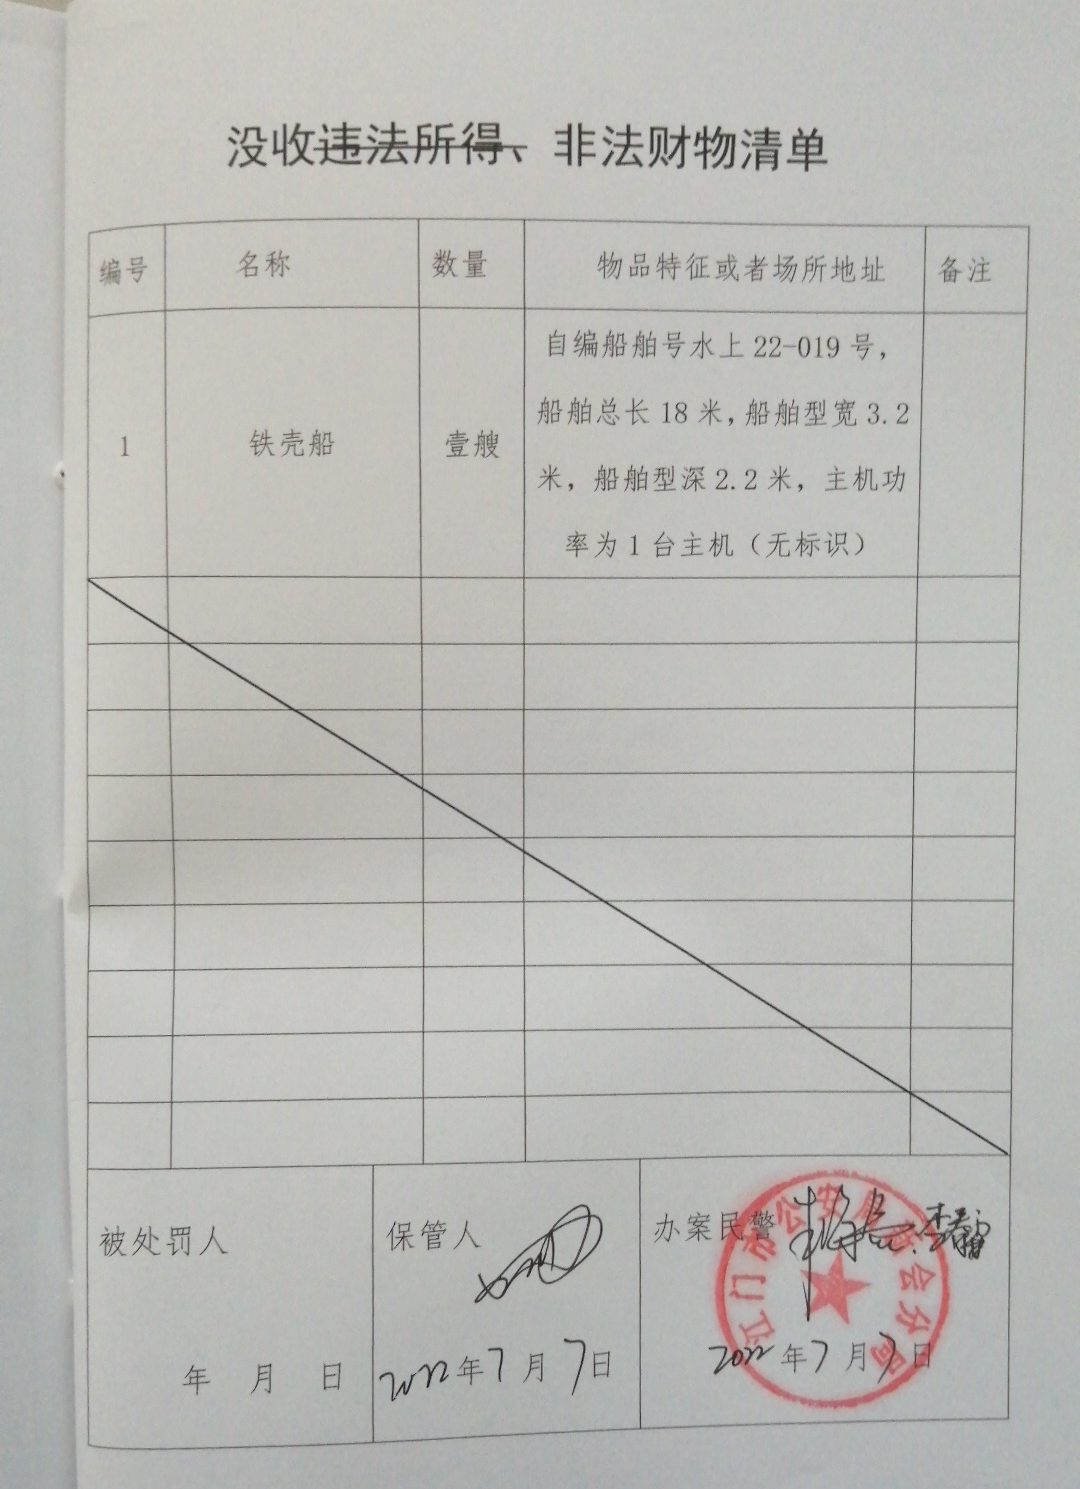 没收违法所得、非法财物清单
编号 名称 数量 物品特征或者场所地址 备注
1 铁壳船 壹艘 自编船舶号水上 22-019 号，
船舶总长 18 米，船舶型宽 3.2
米，船舶型深 2.2 米，主机功
率为 1 台主机（无标识）
被处罚人 保管人 办案民警
年 月 日 2022年7月7日 2022年7月7日
江门市公安局新会分局